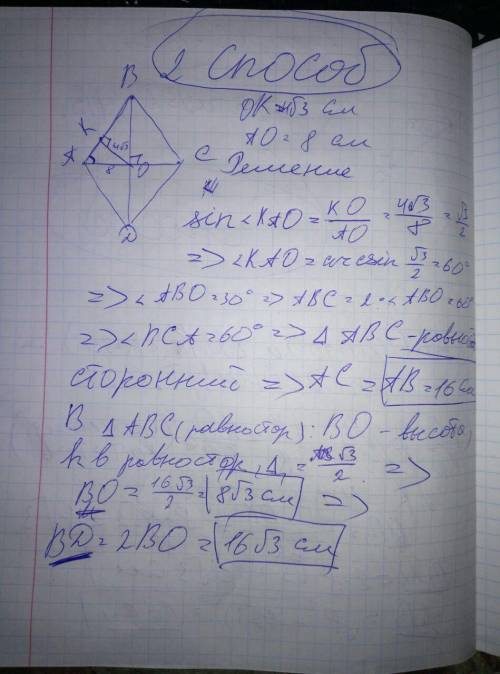 2 способ
B
OK=4√3 см
K
4√3
AO=8 см
A
8
O
C
Решение
D
sin<KAO=KO/AO=4√3/8=√3/2
=><KAO=arcsin √3/2=60°
=><ABO=30°=>ABC=2·<ABO=60°
=><BCA=60°=>△ABC-равно
сторонний =>AC=AB=16см
В △ABC(равностор): BO-высота,
h в равностор. △=AB√3/2 =>
BO=16√3/2=8√3 см =>
BD=2BO=16√3 см